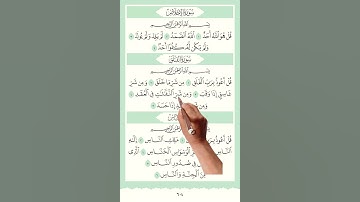 سُورَةُ الإِخْلَاصِ
بِسْمِ اللَّهِ الرَّحْمَٰنِ الرَّحِيمِ
قُلْ هُوَ اللَّهُ أَحَدٌ اللَّهُ الصَّمَدُ لَمْ يَلِدْ وَلَمْ يُولَدْ
وَلَمْ يَكُن لَّهُ كُفُوًا أَحَدٌ
سُورَةُ الْفَلَقِ
بِسْمِ اللَّهِ الرَّحْمَٰنِ الرَّحِيمِ
قُلْ أَعُوذُ بِرَبِّ الْفَلَقِ مِن شَرِّ مَا خَلَقَ وَمِن شَرِّ
غَاسِقٍ إِذَا وَقَبَ وَمِن شَرِّ النَّفَّاثَاتِ فِي الْعُقَدِ
وَمِن إِذَا حَسَدَ
النَّاسِ
قُلْ أَعُوذُ مَلِكِ النَّاسِ إِلَٰهِ
شَرِّ الْوَسْوَاسِ الْخَنَّاسِ الَّذِي
فِي صُدُورِ النَّاسِ
مِنَ الْجِنَّةِ وَالنَّاسِ